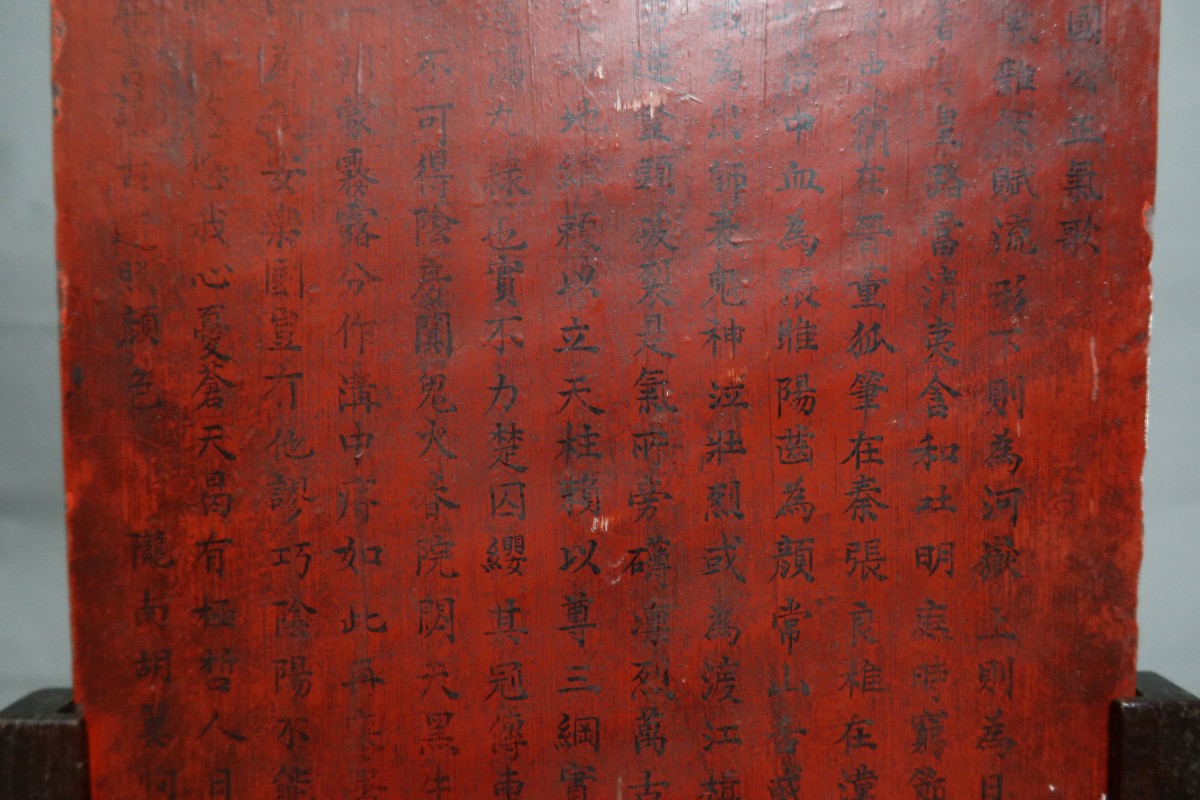 國公正氣歌
氣雜然賦流形下則為河嶽上則為日
蒼冥皇路當清夷含和吐明庭時窮節
史簡在晉董狐筆在秦張良椎在漢
侍中血為張睢陽齒為顏常山舌或
或為出師表鬼神泣壯烈或為渡江楫
逆豎頭破裂是氣所旁礡凜烈萬古
論地維賴以立天柱賴以尊三綱實
遘陽九隸也實不力楚囚纓其冠傳車
不可得陰房闃鬼火春院閟天黑牛
一朝蒙霧露分作溝中瘠如此再寒暑
為我安樂國豈有他謬巧陰陽不能
悠悠我心憂蒼天曷有極哲人日
書讀古道照顏色 隴南胡